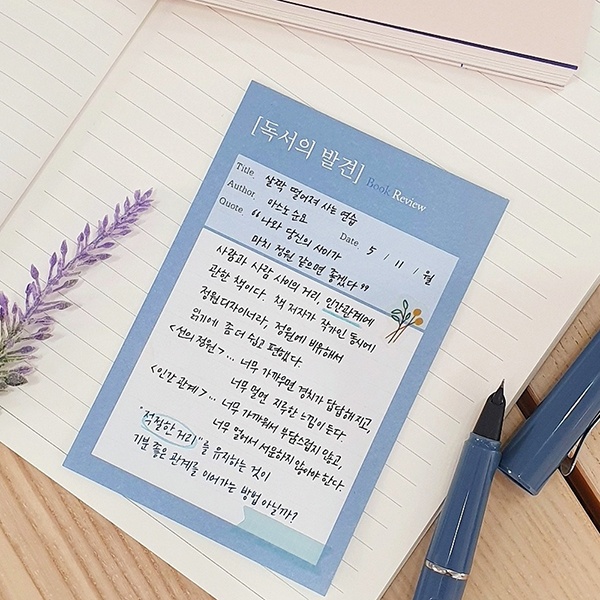 [독서의 발견] Book Review
Title. 살짝 떨어져 사는 연습
Author. 마스노 슌묘
Date. 5 / 11 / 월
Quote. "나와 당신의 사이가
마치 정원 같으면 좋겠다"
사람과 사람 사이의 거리, 인간관계에
관한 책이다. 책 저자가 작가인 동시에
정원디자이너라, 정원에 비유해서
읽기에 좀 더 쉽고 편했다.
<선의 정원>... 너무 가까우면 경치가 답답해지고,
너무 멀면 지루한 느낌이 든다.
<인간 관계>... 너무 가까워서 부담스럽지 않고,
너무 멀어서 서운하지 않아야 한다.
"적절한 거리"를 유지하는 것이
기분 좋은 관계를 이어가는 방법 아닐까?